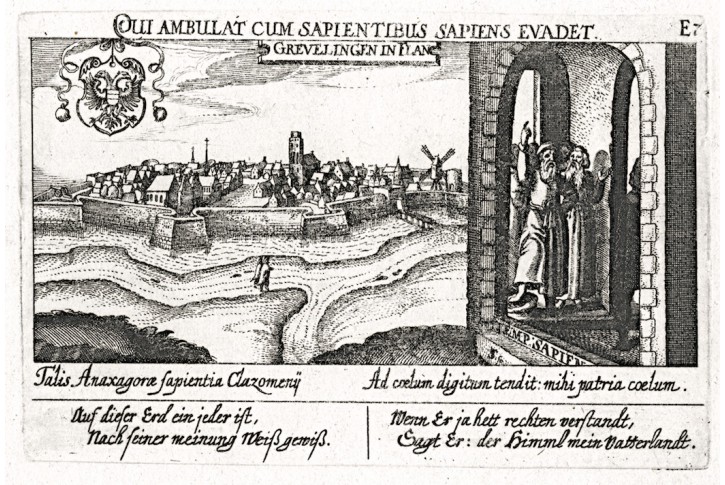 QUI AMBULAT CUM SAPIENTIBUS SAPIENS EVADET.
E7
GREVELINGEN IN FLAN
TEMP. SAPIEN
Talis Anaxagoræ sapientia Clazomenÿ
Ad cœlum digitum tendit: mihi patria cœlum.
Auf dieser Erd ein jeder ist,
Nach seiner meinung Weiß gewiß.
Wenn Er ja hett rechten verstandt,
Sagt Er: der Himml mein Vatterlandt.